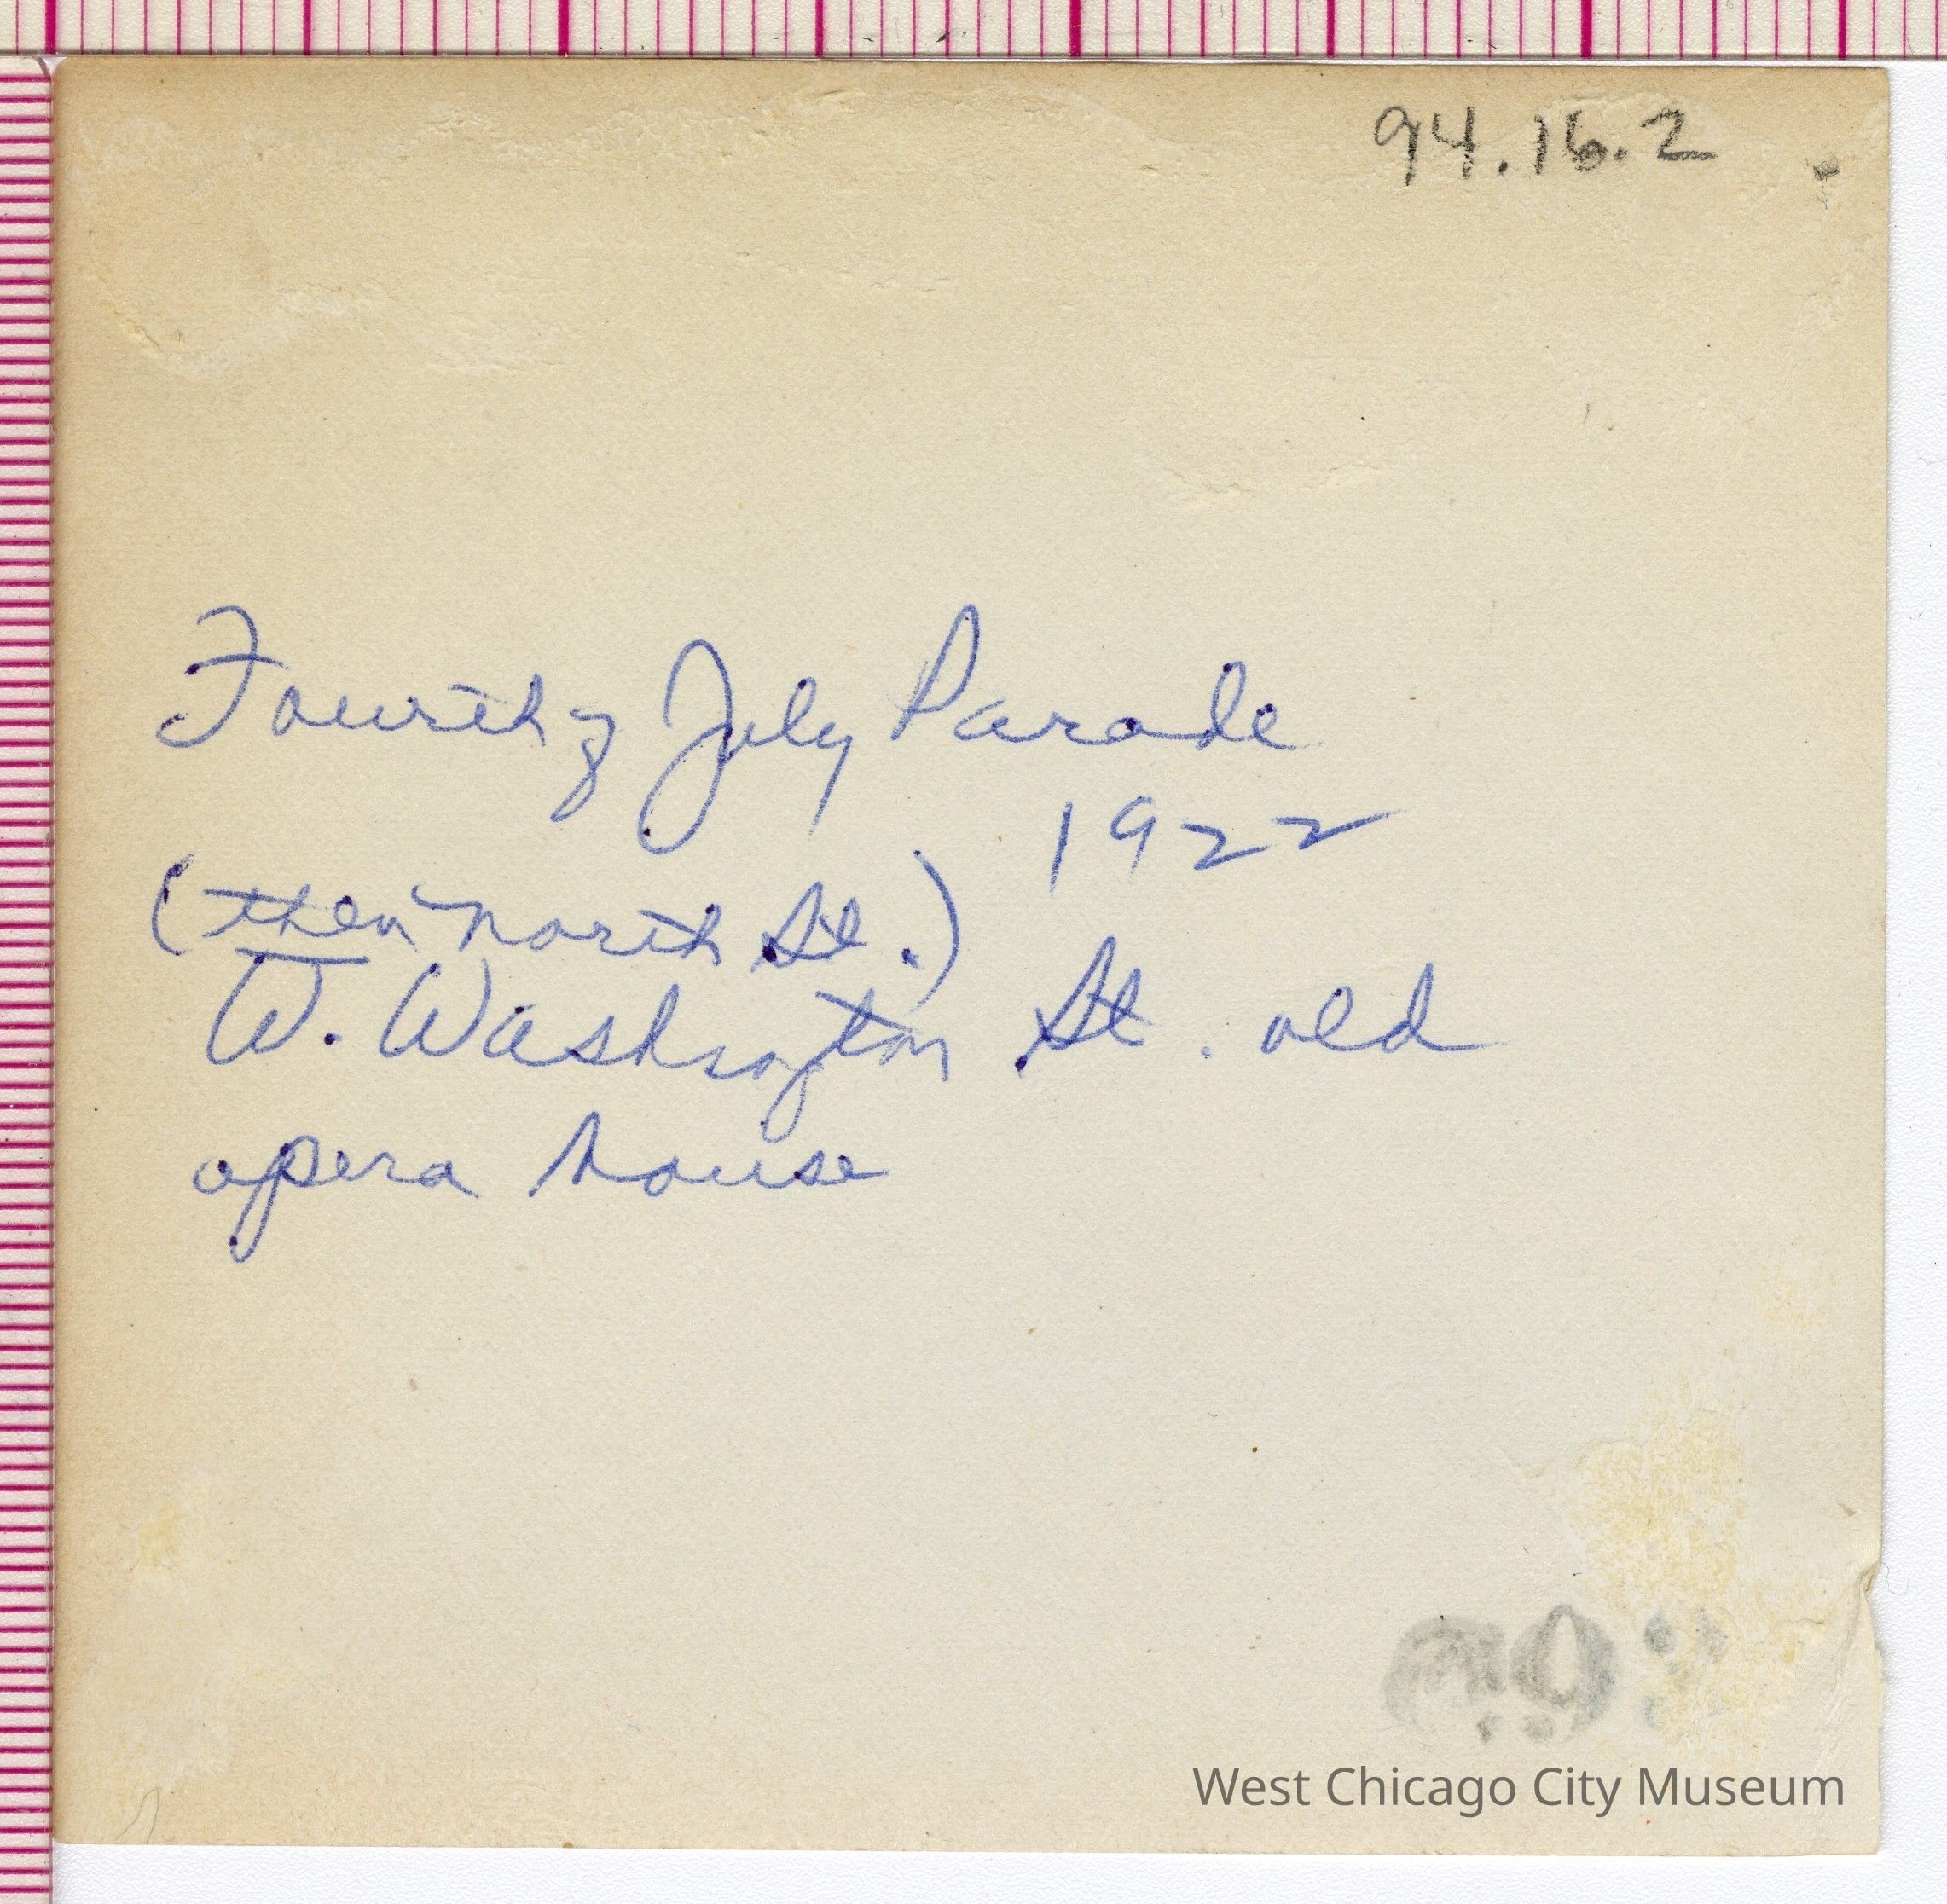 94.16.2
Fourth of July Parade
1922
(then North St.)
W. Washington St. old
opera house
West Chicago City Museum